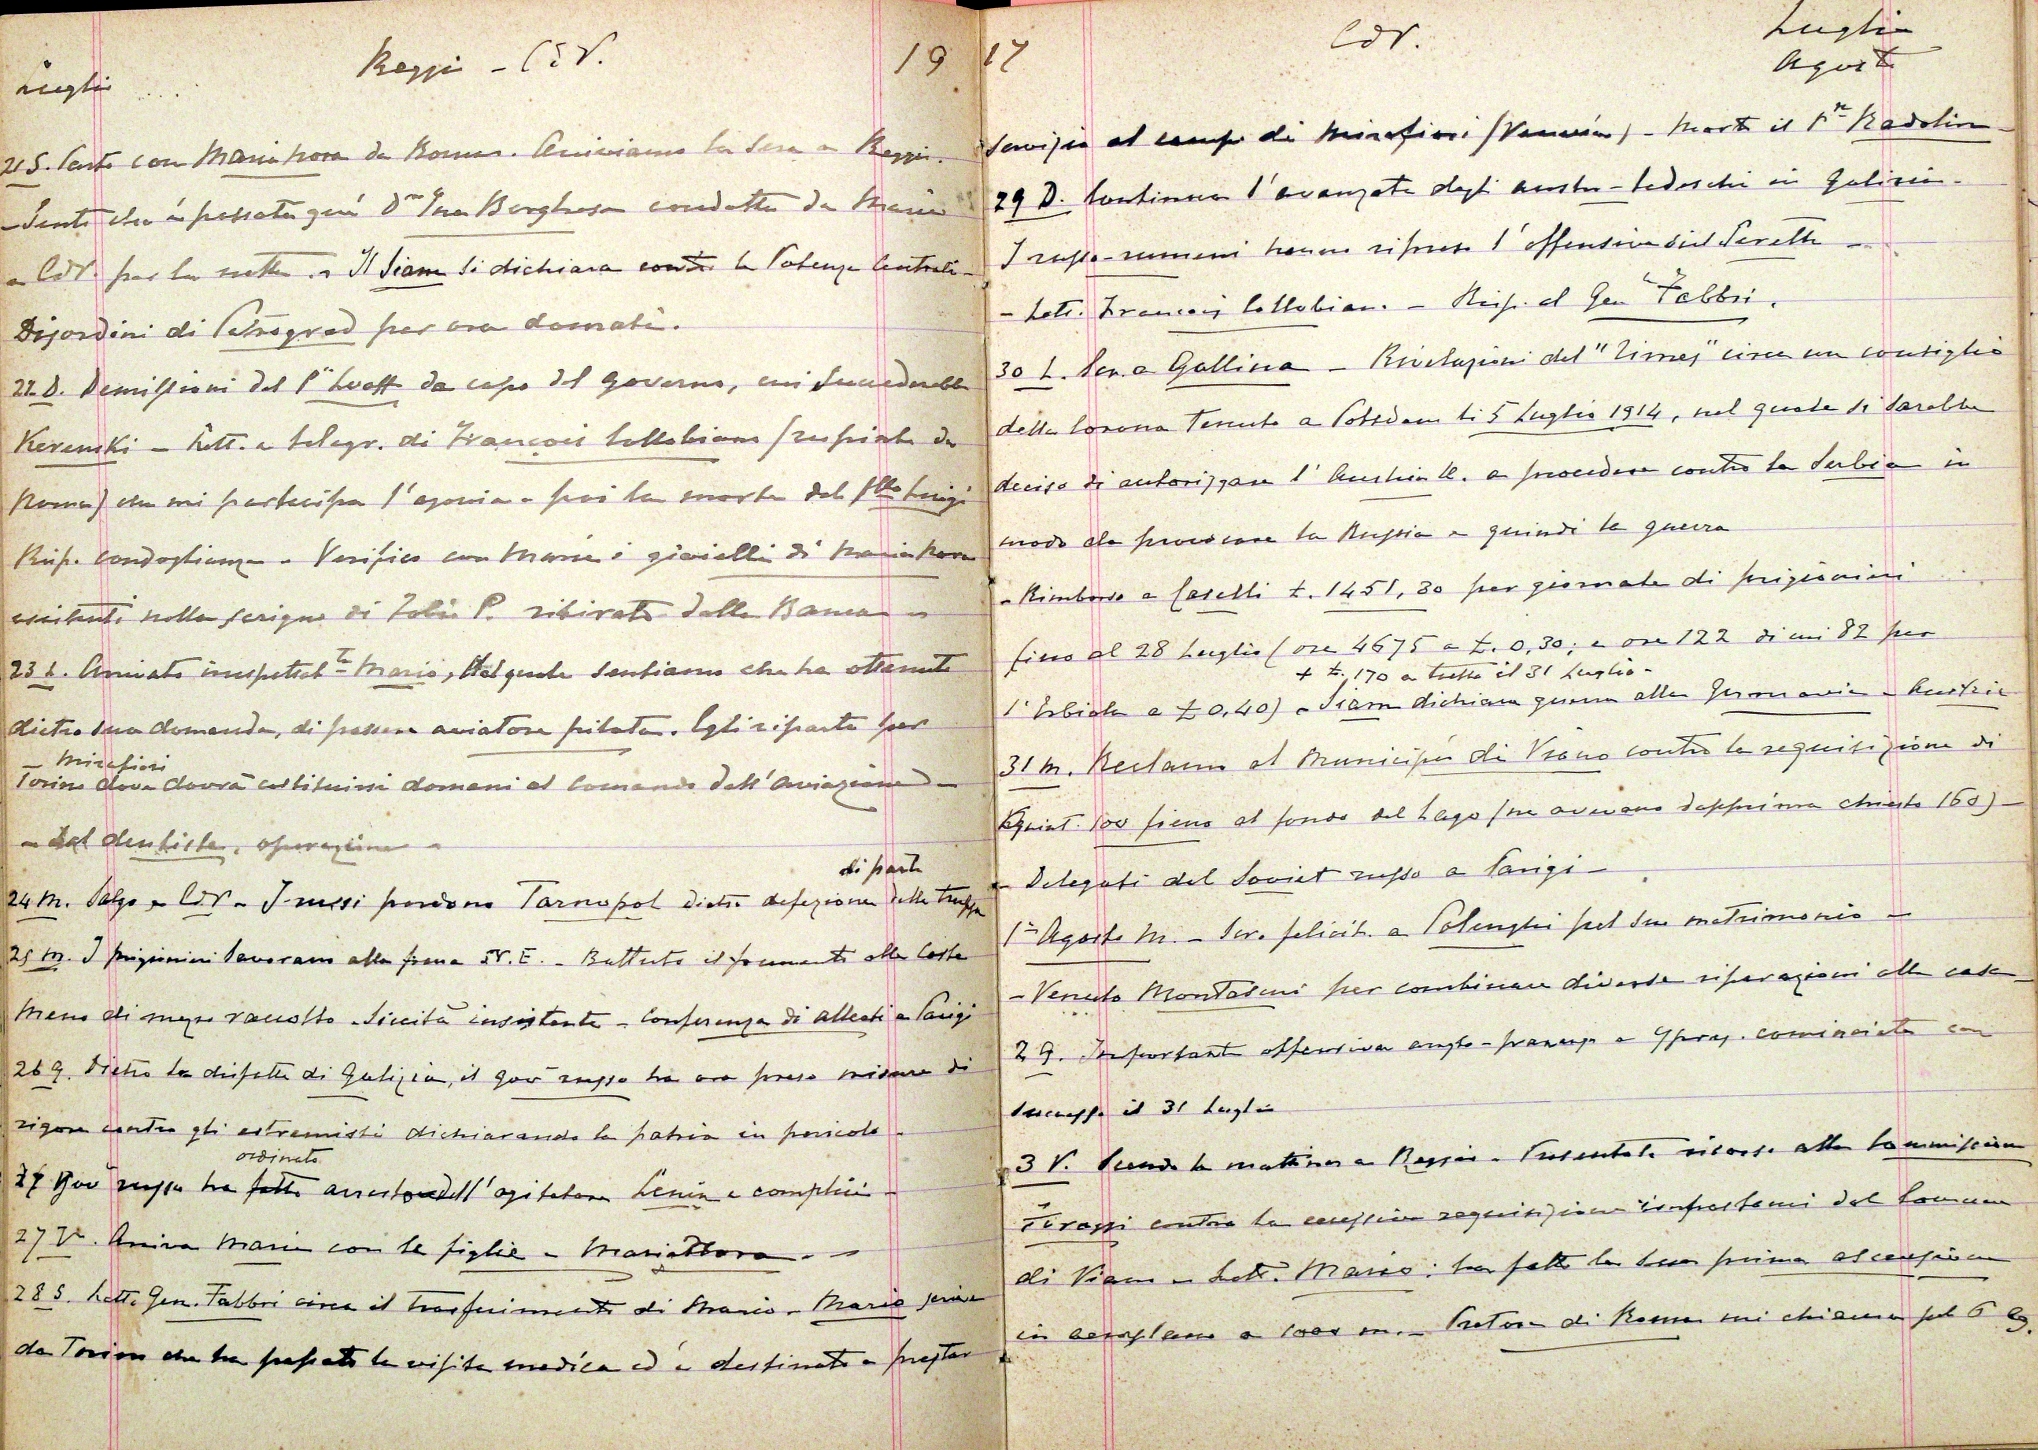 Luglio
Reggio - CdV.
19
21 S. Parto con Maria Nora da Roma. Arriviamo la sera a Reggio.
- Sento che è passata quì D.na Ina Borghese condotta da Mario
a CdV. per la notte. - Il Siam si dichiara contro le Potenze Centrali -
Disordini di Petrograd per ora domati.
22 D. Demissioni del P.e Lvoff da capo del governo, cui succederebbe
Kerenski - Lett. e telegr. di François Collobiano (respinto da
Roma) che mi partecipa l'agonia e poi la morte del f.llo Luigi
Risp. condoglianze - Verifico con Mario i gioielli di Maria Nora
esistenti nello scrigno di Zobi P. ritirato dalla Banca -
23 L. Arrivato inaspettat.te Mario, dal quale sentiamo che ha ottenuto
dietro sua domanda, di passare aviatore pilota. Egli riparte per
Mirafiori
Torino dove dovrà costituirsi domani al Comando dell'Aviazione -
- Dal dentista, operazione -
di parte
24 M. Salgo a CdV - I russi perdono Tarnopol dietro defezione delle truppe
25 M. I prigionieri lavorano alla frana N.E. - Battuto il frumento alle Coste
Meno di mezzo raccolto - Siccità insistente - Conferenza di alleati a Parigi
26 G. Dietro la disfatta di Galizia, il gov.o russo ha ora preso misure di
rigore contro gli estremisti dichiarando la patria in pericolo -
ordinato
27 Gov.o russo ha fatto arrestare dell'agitatore Lenin e complici -
27 V. Arriva Maria con le figlie e Maria Nora. -
28 S. Lett. Gen. Fabbri circa il trasferimento di Mario - Mario scrive
da Torino che ha passato la visita medica ed è destinato a prestar
17
CdV.
Luglio
Agosto
servizio al campo di Mirafiori (Venaria) - Morto il P.e Radolin -
29 D. Continua l'avanzata degli austro-tedeschi in Galizia -
I russo-rumeni hanno ripreso l'offensiva sul Sereth -
- Lett. François Collobiano - Risp. al Gen.e Fabbri.
30 L. Scr. a Gallina - Rivelazioni del "Times" circa un consiglio
della Corona tenuto a Potsdam li 5 Luglio 1914, nel quale si sarebbe
deciso di autorizzare l'Austria U. a procedere contro la Serbia in
modo da provocare la Russia e quindi la guerra
- Rimborso a Caselli £. 1451,30 per giornate di prigionieri
fino al 28 Luglio (ore 4675 a £. 0,30; e ore 122 di cui 82 per
+ £. 170 a tutto il 31 Luglio -
l'Erbiola a £ 0,40) - Siam dichiara guerra alla Germania e Austria
31 M. Reclamo al Municipio di Viano contro la requisizione di
Quint. 100 fieno al fondo del Lago (ne avevano dapprima chiesto 160) -
- Delegati del Soviet russo a Parigi -
1° Agosto M. - Scr. felicit. a Polenghi pel suo matrimonio -
- Venuto Montasini per combinare diverse riparazioni alle case -
2 G. Importante offensiva anglo-francese a Ypres. cominciata con
successo il 31 Luglio
3 V. Scendo la mattina a Reggio - Presentato ricorso alla Commissione
Terazzi contro la eccessiva requisizione impostami dal Comune
di Viano - Lett. Mario: ha fatto la sua prima ascensione
in aeroplano a 1000 m. - Pretore di Roma mi chiama pel 6 ag.